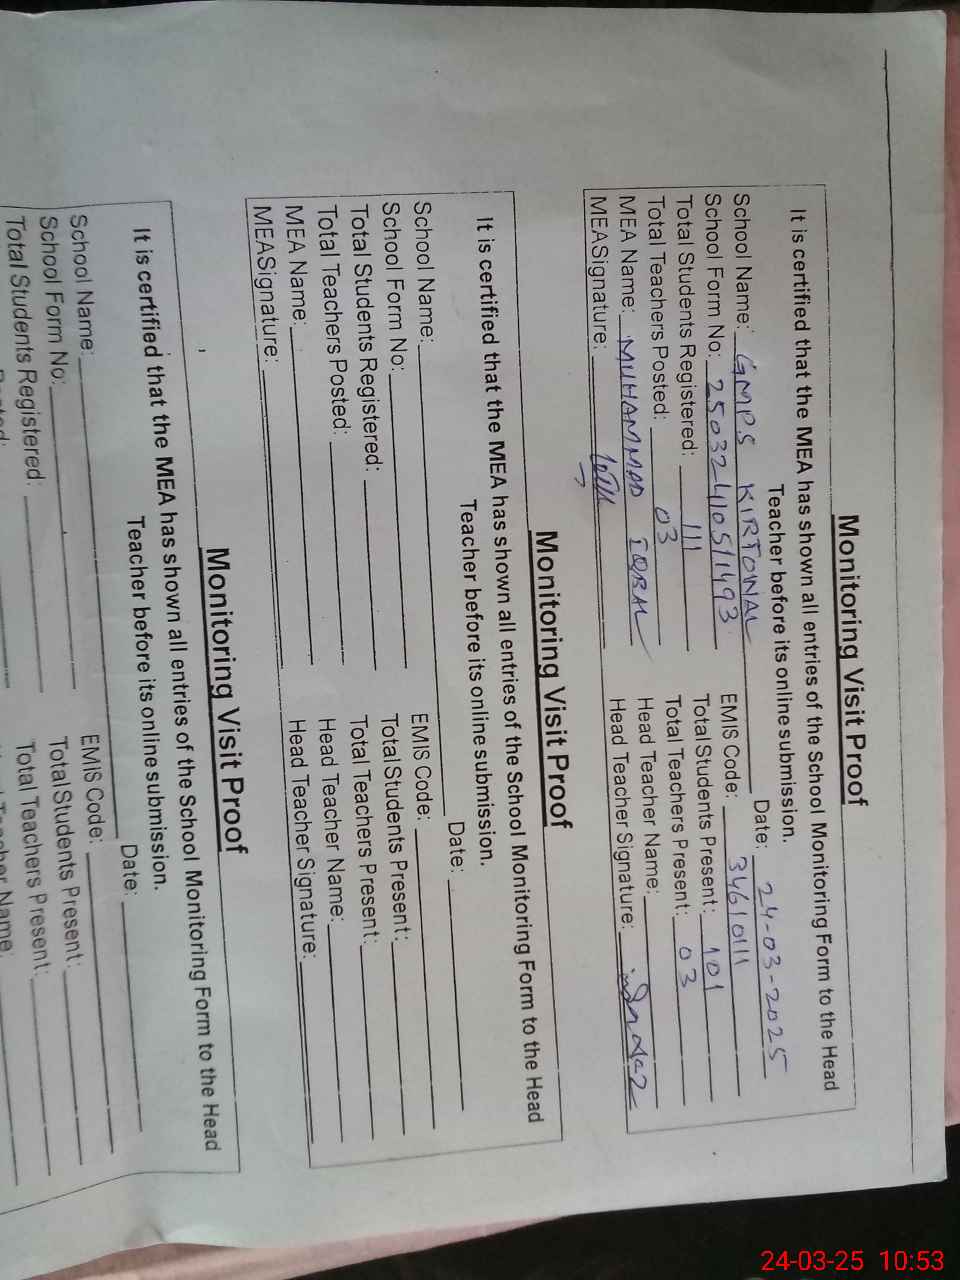 Monitoring Visit Proof
It is certified that the MEA has shown all entries of the School Monitoring Form to the Head
Teacher before its online submission.
School Name: GMPS KIRTOWAL Date: 24-03-2025
School Form No: 25032411051493 EMIS Code: 34610111
Total Students Registered: 111 Total Students Present: 101
Total Teachers Posted: 03 Total Teachers Present: 03
MEA Name: MUHAMMAD IQBAL Head Teacher Name:
MEASignature: Head Teacher Signature:
Monitoring Visit Proof
It is certified that the MEA has shown all entries of the School Monitoring Form to the Head
Teacher before its online submission.
School Name: Date:
School Form No: EMIS Code:
Total Students Registered: Total Students Present:
Total Teachers Posted: Total Teachers Present:
MEA Name: Head Teacher Name:
MEASignature: Head Teacher Signature:
Monitoring Visit Proof
It is certified that the MEA has shown all entries of the School Monitoring Form to the Head
Teacher before its online submission.
School Name: Date:
School Form No: EMIS Code:
Total Students Registered: Total Students Present:
Total Teachers Present:
Name:
24-03-25 10:53